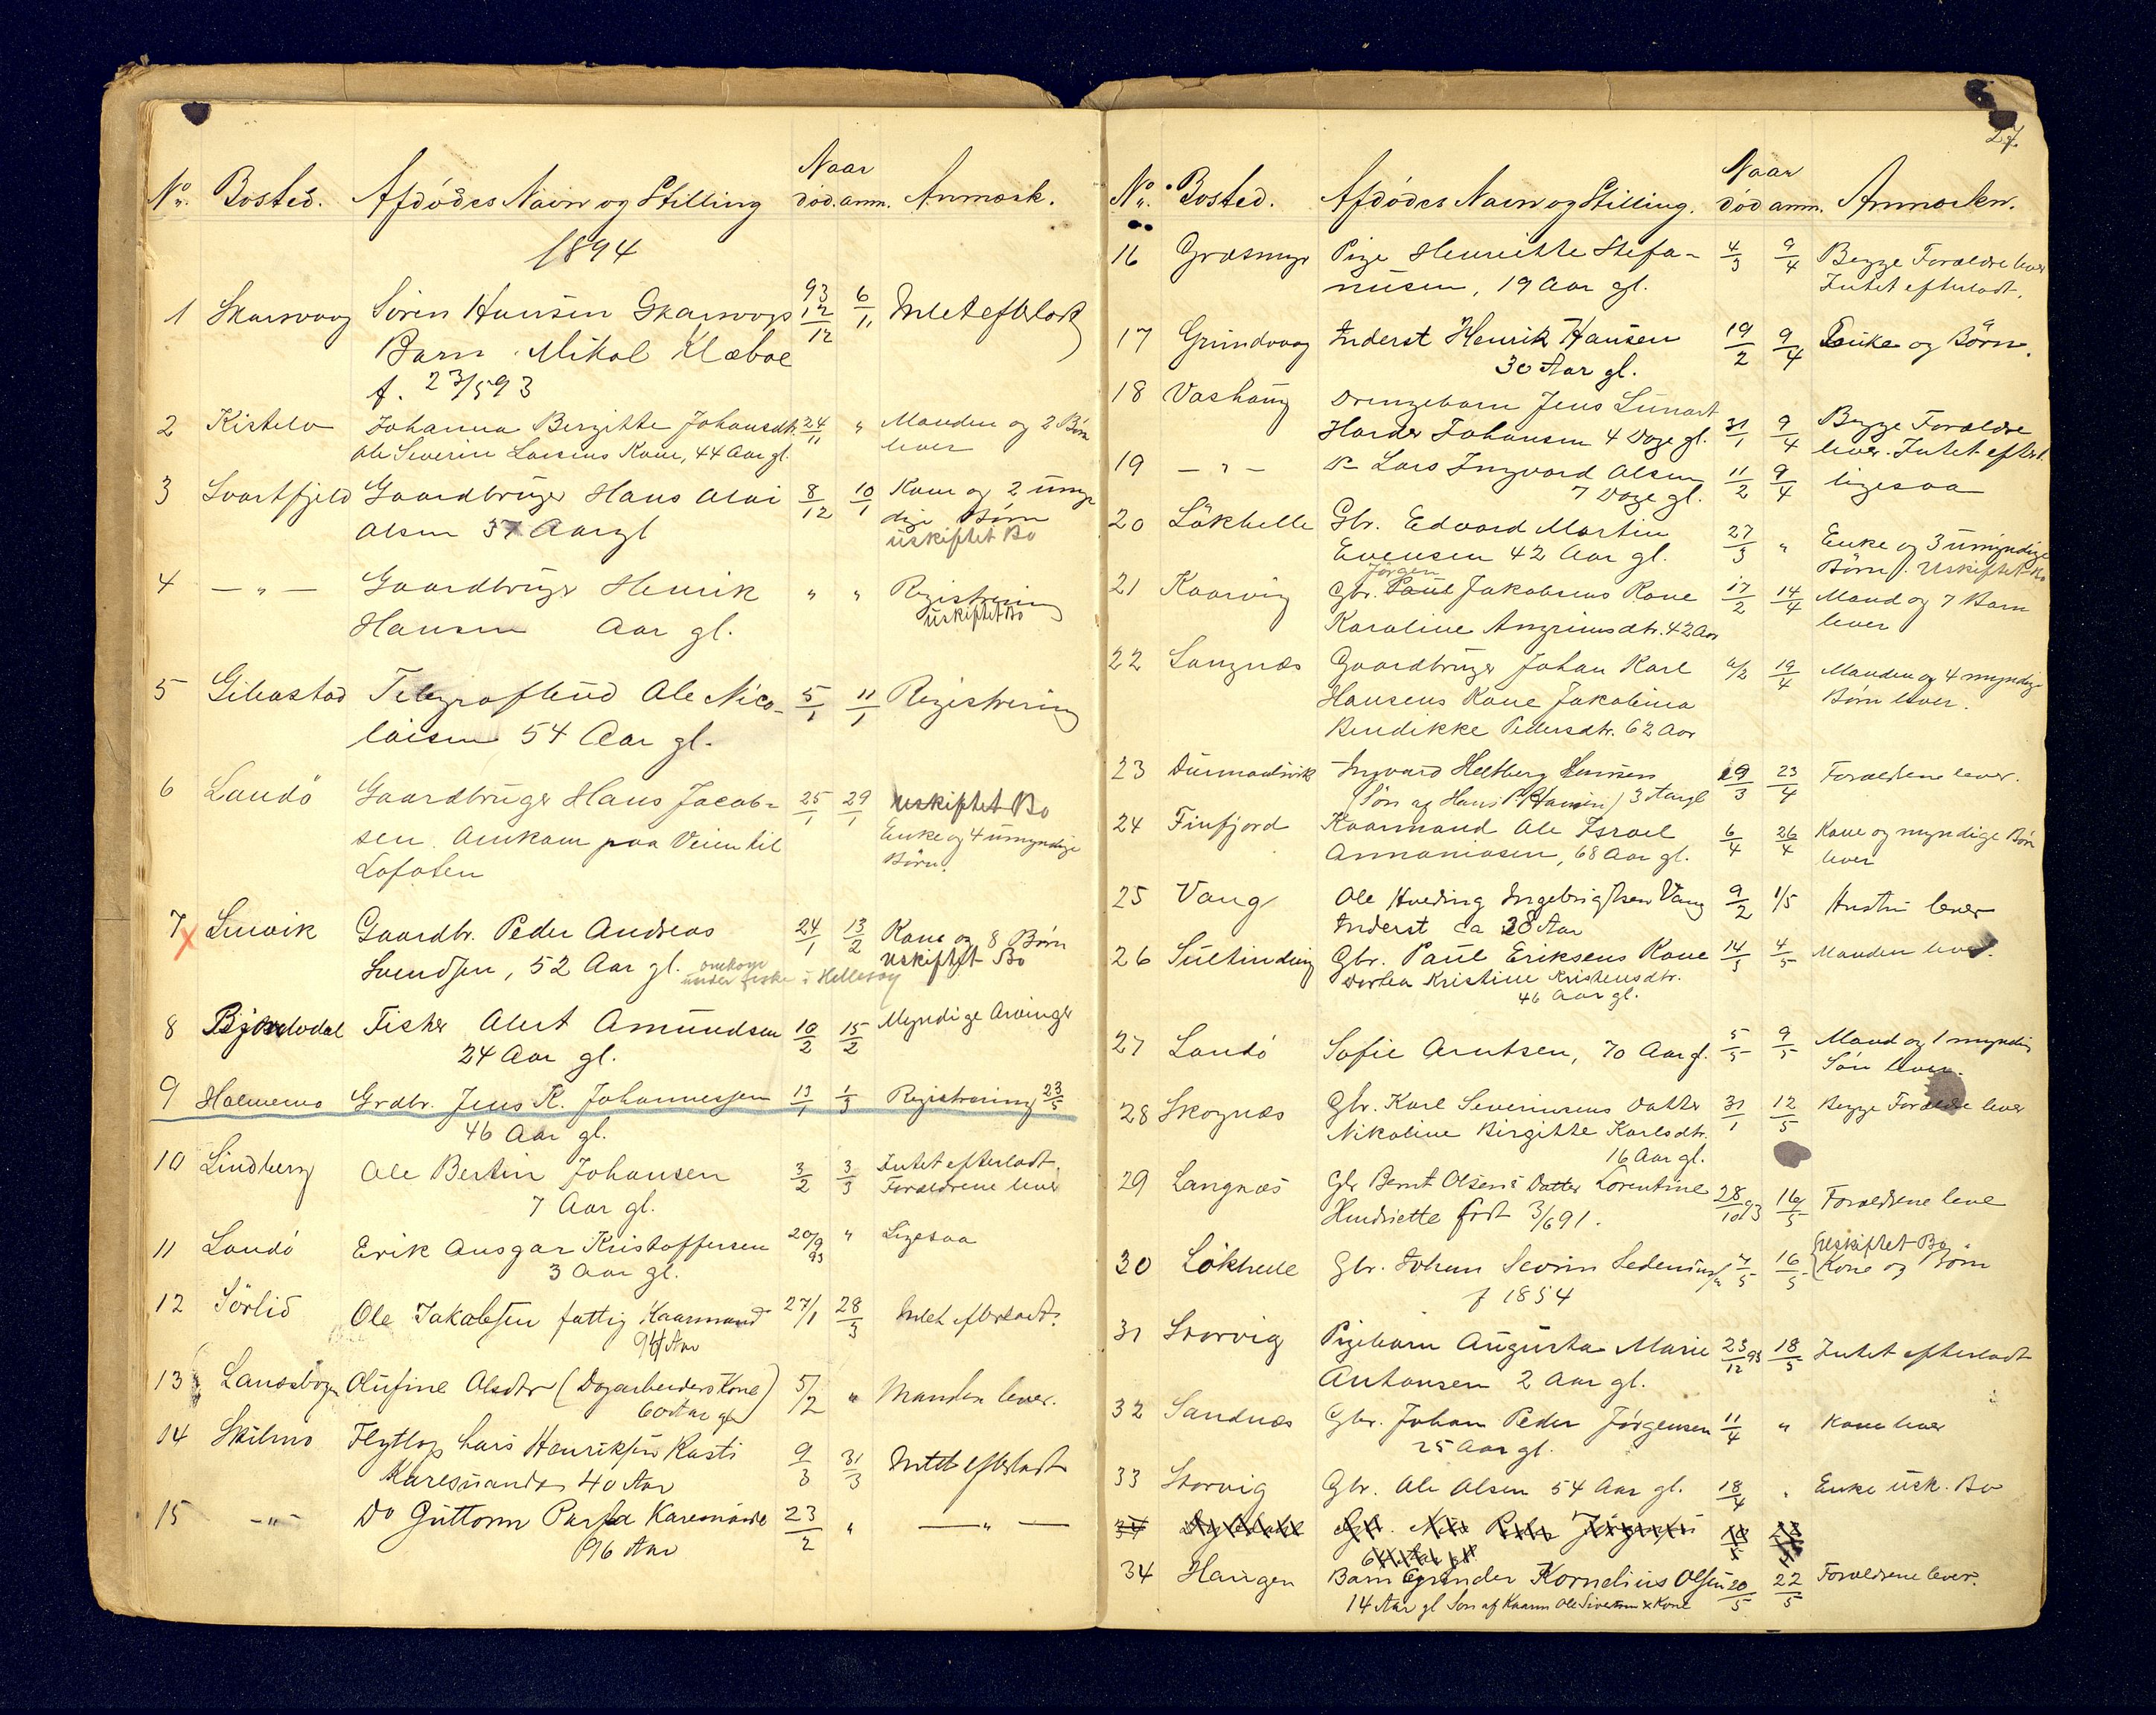 Naar
No. Bosted. Afdødes Navn og Stilling død. anm. Anmærk.
1894
1 Skarsvaag Sören Hansen Skarsvaags 93 12/12 6/1 Intet efterladt
Barn Mikal Klæboe
f. 23/5 93
2 Kistelv Johanna Bergitte Johansdtr. 24/11 " Manden og 2 Børn
Ole Severin Larsens Kone, 44 Aar gl. lever
3 Svartfjeld Gaardbruger Hans Olai 8/12 10/1 Kone og 2 umyn
Olsen 37 Aar gl dige Børn
uskiftet Bo
4 — " — Gaardbruger Henrik " " Registrering
Hansen Aar gl. uskiftet Bo
5 Gibostad Telegrafbud Ole Nico- 5/1 11/1 Registrering
laisen 54 Aar gl.
6 Laudö Gaardbruger Hans Jacob- 25/1 29/1 uskiftet Bo
sen. Omkom paa Veien til Enke og 4 umyndige
Lofoten Børn.
7 Lenvik Gaardbr. Peder Andreas 24/1 13/2 Kone og 8 Børn
Svendsen, 52 Aar gl. omkom uskiftet Bo
under fiske i Hellesøy
8 Bjørelvdal Fisker Alert Amundsen 10/2 15/2 Myndige Arvinger
24 Aar gl.
9 Holmemo Grdbr. Jens K. Johannessen 13/1 1/3 Registrering 23/5
46 Aar gl.
10 Lindberg Ole Bertin Johansen 3/2 3/3 Intet efterladt.
7 Aar gl. Forældrene lever
11 Laudö Erik Ansgar Kristoffersen 20/9 93 " Ligesaa
3 Aar gl.
12 Sörlid Ole Jakobsen fattig Kaarmand 27/1 28/3 Intet efterladt.
94 Aar
13 Lanesbogen Olufine Olsdtr (Dagarbeiders Kone) 5/2 " Manden lever.
60 Aar gl
14 Skilmo Flytlap Lars Henriksen Rasti 9/3 31/3 Intet efterladt
Karesuando 40 Aar
15 — " — Do Guttorm Karesuando 23/2 " — " —
96 Aar
27.
Naar
No. Bosted. Afdødes Navn og Stilling. død anm. Anmærkn.
16 Græsmyr Pige Henrikke Stefa- 4/3 9/4 Begge Forældre lever
nusen, 19 Aar gl. Intet efterladt.
17 Grundvaag Inderst Henrik Hansen 19/2 9/4 Enke og Børn.
30 Aar gl.
18 Vashaug Drengebarn Jens Lunart
Harder Johansen 4 Dage gl. 31/1 9/4 Begge Forældre
lever. Intet efterl.
19 — " — Lars Ingvard Olsen 11/2 9/4 ligesaa
7 Dage gl.
20 Lökhelle Gbr. Edvard Martin 27/3 " Enke og 3 umyndige
Evensen 42 Aar gl. Børn. Uskiftet Bo
Jörgen
21 Kaarvig Gbr. Paul Jakobsens Kone 17/2 14/4 Mand og 7 Barn
Karoline Angrimsdtr. 42 Aar lever
22 Langnæs Gaardbruger Johan Karl 6/2 19/4 Manden og 4 myndige
Hansens Kone Jakobina Børn lever.
Bendikke Pedersdtr. 62 Aar
23 Durmaalsvik Ingvard Heltberg Hansen 29/3 23/4 Forældrene lever.
(Søn af Hans P. Hansen) 3 Aar gl
24 Finfjord Kaarmand Ole Israel 6/4 26/4 Kone og myndige Børn
Annaniasen, 68 Aar gl. lever
25 Vang Ole Hveding Ingebrigtsen Vang 9/2 1/5 Hustru lever
Inderst ca 28 Aar
26 Sultinding Gbr. Paul Eriksens Kone 14/3 4/5 Manden lever.
Dortea Kristine Kristensdtr.
46 Aar gl.
27 Laudö Sofie Arntsen, 70 Aar g. 5/5 9/5 Mand og 1 myndig
Søn lever.
28 Skognæs Gbr. Karl Severinsens Datter 31/1 12/5 Begge Forældre lever
Nikoline Birgitte Karlsdtr.
16 Aar gl.
29 Langnæs Gbr Bernt Olsens Datter Lorentine 28/10 93 16/5 Forældrene leve
Hendriette født 3/6 91.
uskiftet Bo
30 Lökhelle Gbr. Johan Sevrin Sedeniussen 7/5 16/5 Kone og Børn
f 1854
31 Storvig Pigebarn Augusta Marie 23/12 93 18/5 Intet efterladt
Antonsen 2 Aar gl.
32 Sandnæs Gbr. Johan Peder Jörgensen 11/4 " Kone lever
25 Aar gl.
33 Storvig Gbr. Ole Olsen 54 Aar gl. 18/4 " Enke usk. Bo
34
34 Haugen Barn Kornelius Olsen 20/5 22/5 Forældrene lever.
14 Aar gl Søn af Kaarm Ole Siversen & Kone